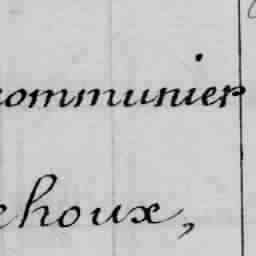 communier
ehoux,